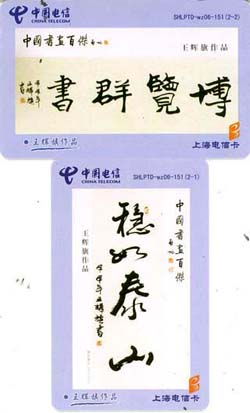 中国电信
CHINA TELECOM
SHLPTD-wz06-151(2-2)
中國書畫百傑
王辉旗作品
博覽群書
王辉旗作品
上海电信卡
中国电信
CHINA TELECOM
SHLPTD-wz06-151(2-1)
中國書畫百傑
王辉旗作品
穏如泰山
王辉旗作品
上海电信卡